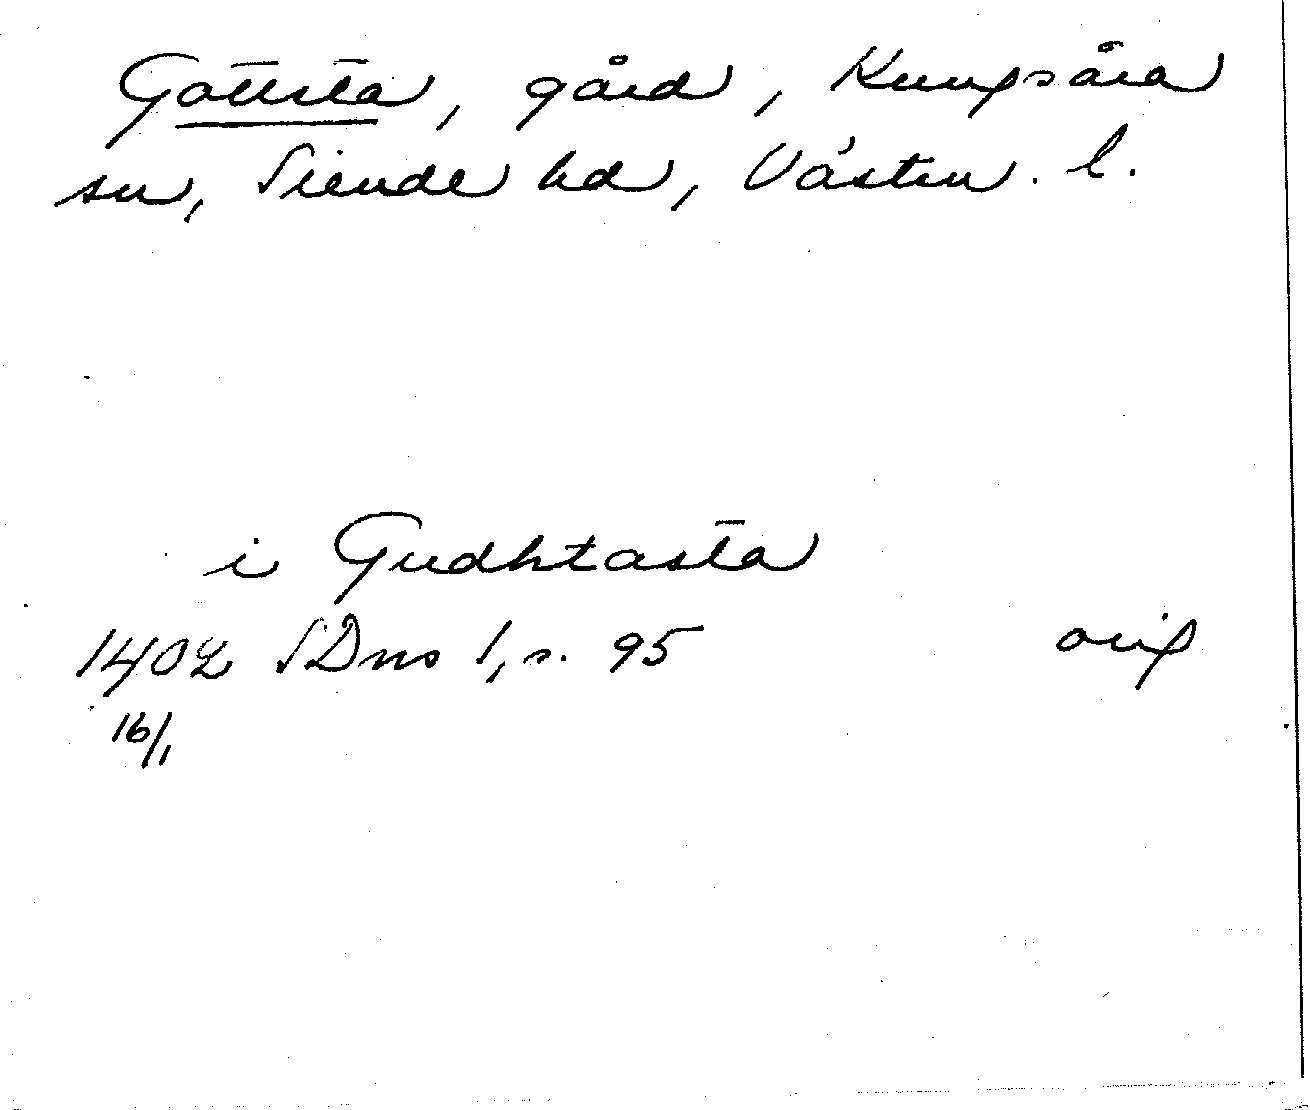 Gottsta, gård, Kungsåra
sn, Siende hd, Västm. l.
i Gudhtasta
1402 SDns 1, s. 95 orig
16/1